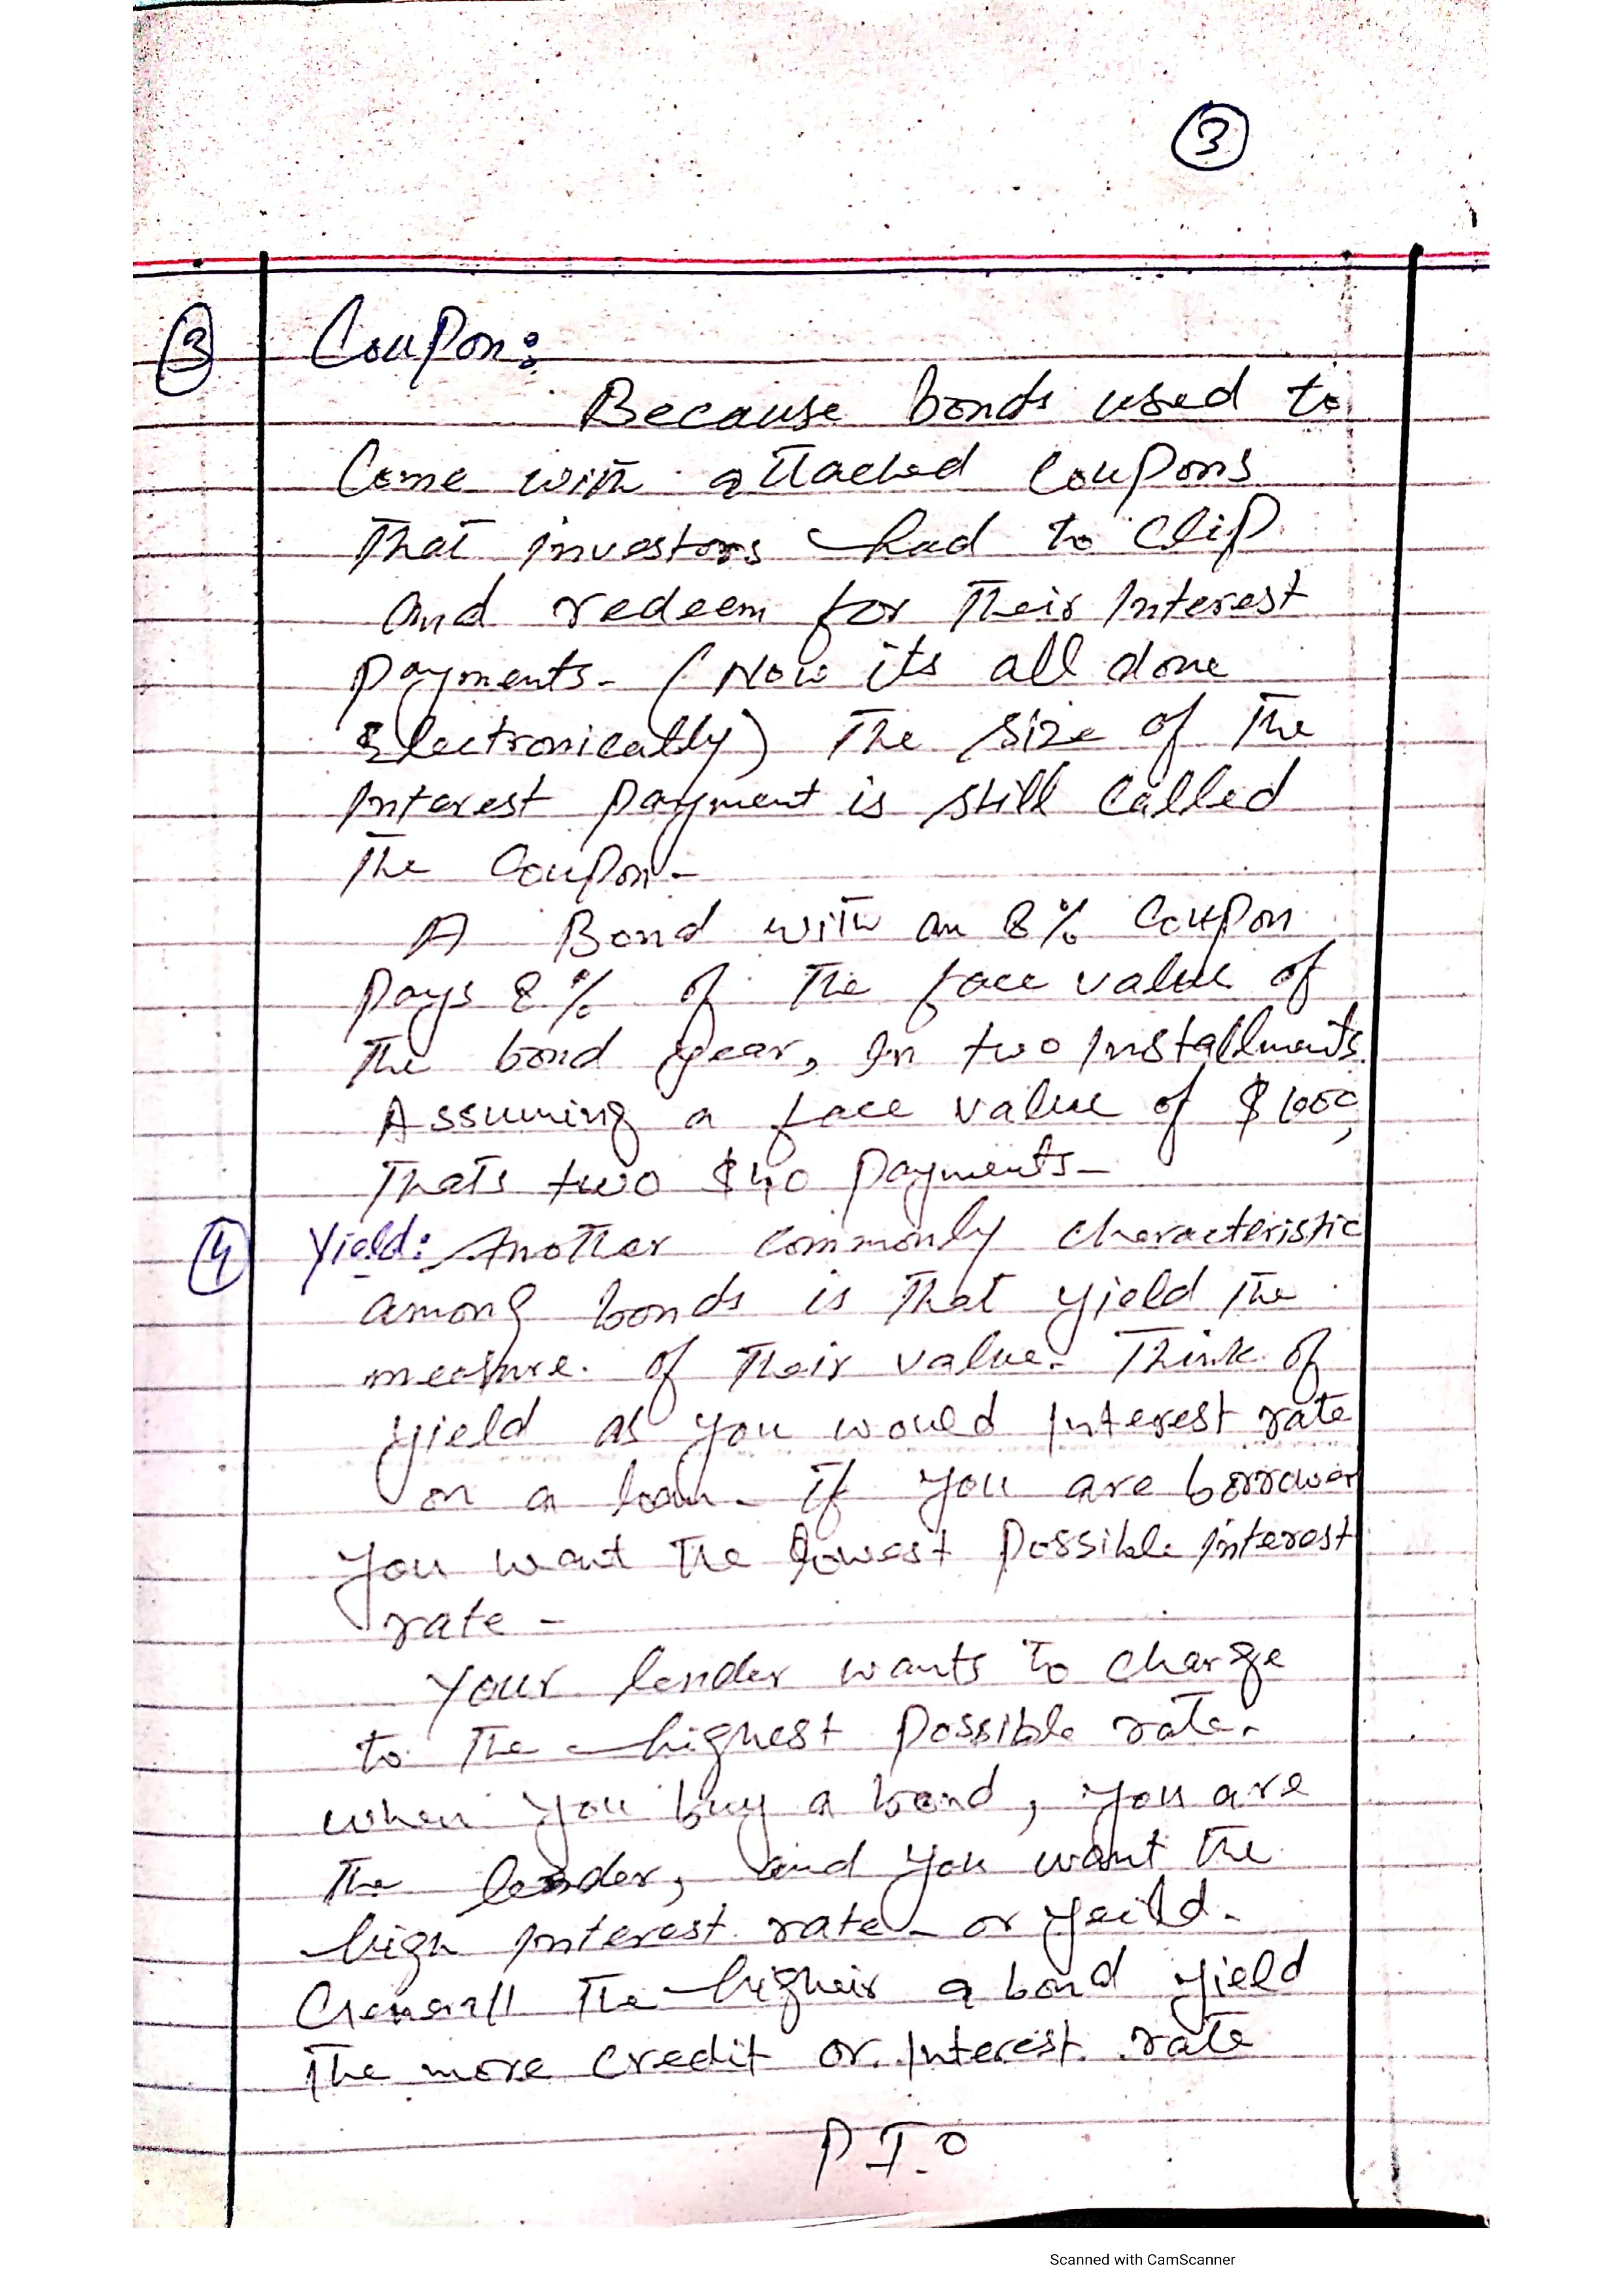 3
3 Coupon:
Because bonds used to
Come with attached Coupons
That investors had to Clip
And redeem for Their Interest
payments. (Now its all done
Electronically) The size of The
Interest payment is still Called
The Coupon.
A Bond with an 8% Coupon
Pays 8% of The face value of
The bond year, In two Installments.
Assuming a face value of $1000,
Thats two $40 payments.
4 Yield: Another commonly characteristic
among bonds is That yield The
measure. of Their value. Think of
yield as you would Interest rate
on a loan. If you are borrower
you want The lowest possible interest
rate -
Your lender wants to charge
to The highest possible rate.
when you buy a bond, you are
The lender, and you want The
high interest rate or yeild.
Generall The higheir a bond yield
The more credit or Interest rate
P.T.O
Scanned with CamScanner